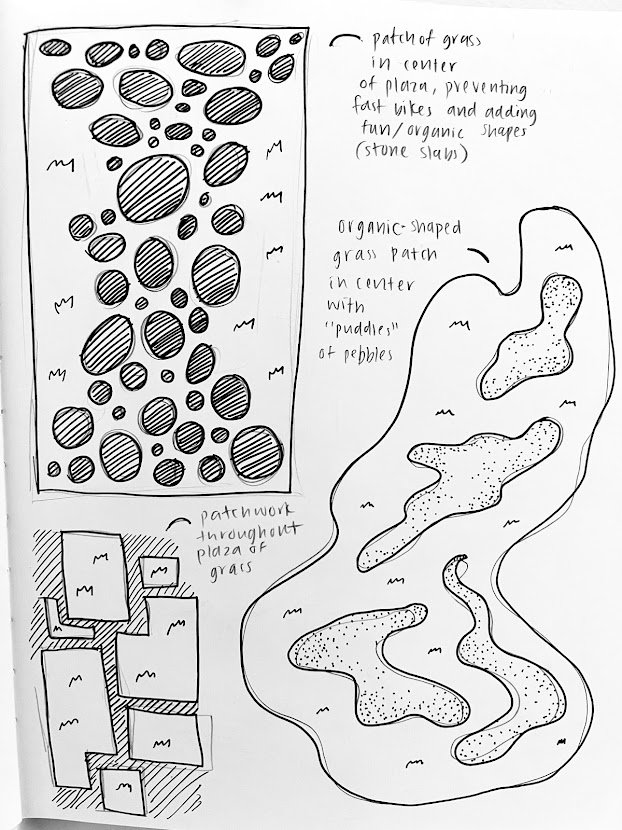 patch of grass
in center
of plaza, preventing
fast bikes and adding
fun/organic shapes
(stone slabs)
organic-shaped
grass patch
in center
with
"puddles"
of pebbles
patchwork
throughout
plaza of
grass